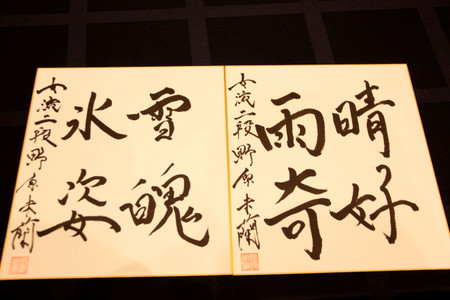 晴好
雨奇
女流二段 野原未蘭
雪魄
氷姿
女流二段 野原未蘭